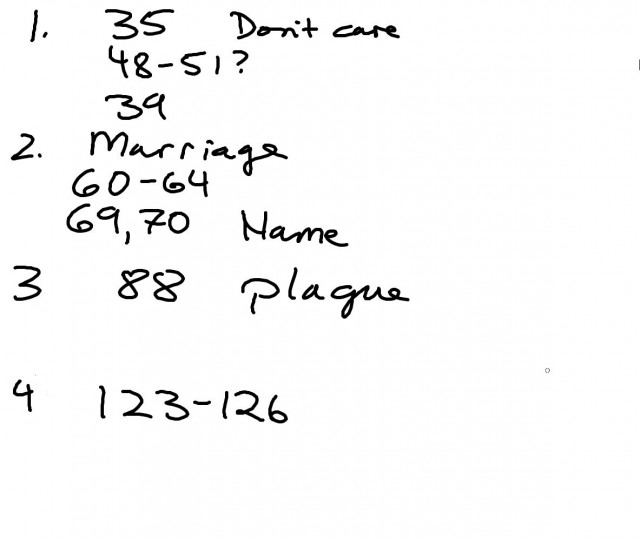 1. 35 Don't care
48-51?
39
2. Marriage
60-64
69,70 Name
3 88 plague
4 123-126